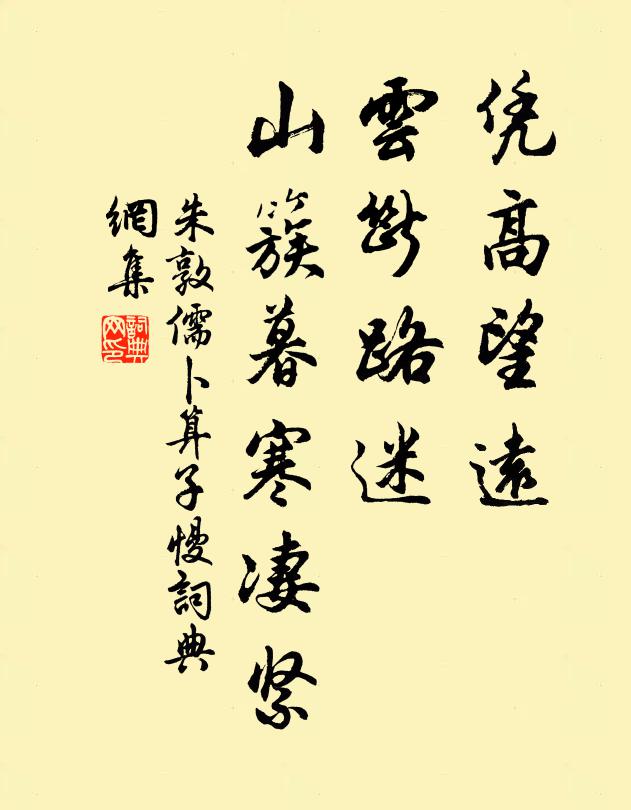 凭高望遠
雲斷路迷
山簇暮寒凄緊
朱敦儒卜算子慢詞典
網集
詞典
网印